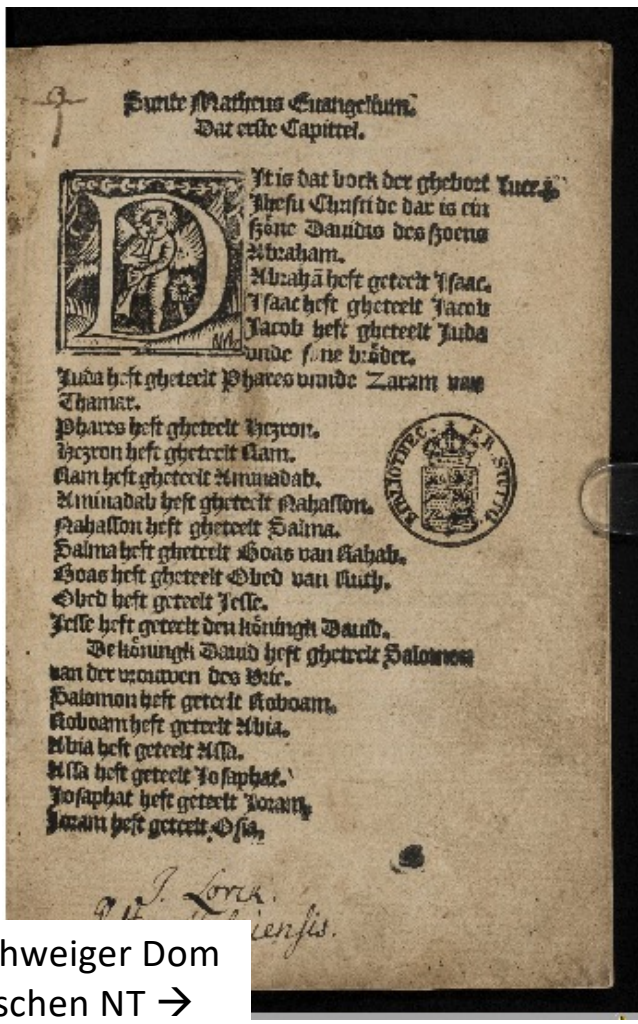 Sunte Matheus Euangelium.
Dat erste Capittel.
DIt is dat boek der ghebort Luce.3.
Jhesu Christi de dar is ein
szone Dauidis des szoens
Abraham.
Abrahā heft geteelt Isaac.
Isaac heft gheteelt Jacob
Jacob heft gheteelt Juda
vnde sine bröder.
Juda heft gheteelt Phares vnnde Zaram van
Thamar.
Phares heft gheteelt Hezron.
Hezron heft gheteelt Ram.
Ram heft gheteelt Aminadab.
Aminadab heft gheteelt Nahasson.
Nahasson heft gheteelt Salma.
Salma heft gheteelt Boas van Rahab.
Boas heft gheteelt Obed van Ruth.
Obed heft geteelt Jesse.
Jesse heft geteelt den köningk Dauid.
De köningk Dauid heft gheteelt Salomon
van der vrouwen des Vrie.
Salomon heft geteelt Roboam.
Roboam heft geteelt Abia.
Abia heft geteelt Assa.
Assa heft geteelt Josaphat.
Josaphat heft geteelt Joram.
Joram heft geteelt Osia.
BIBLIOTHEC. P.R. STUTTG.
J. Lorck.
iensis.
hweiger Dom
schen NT →